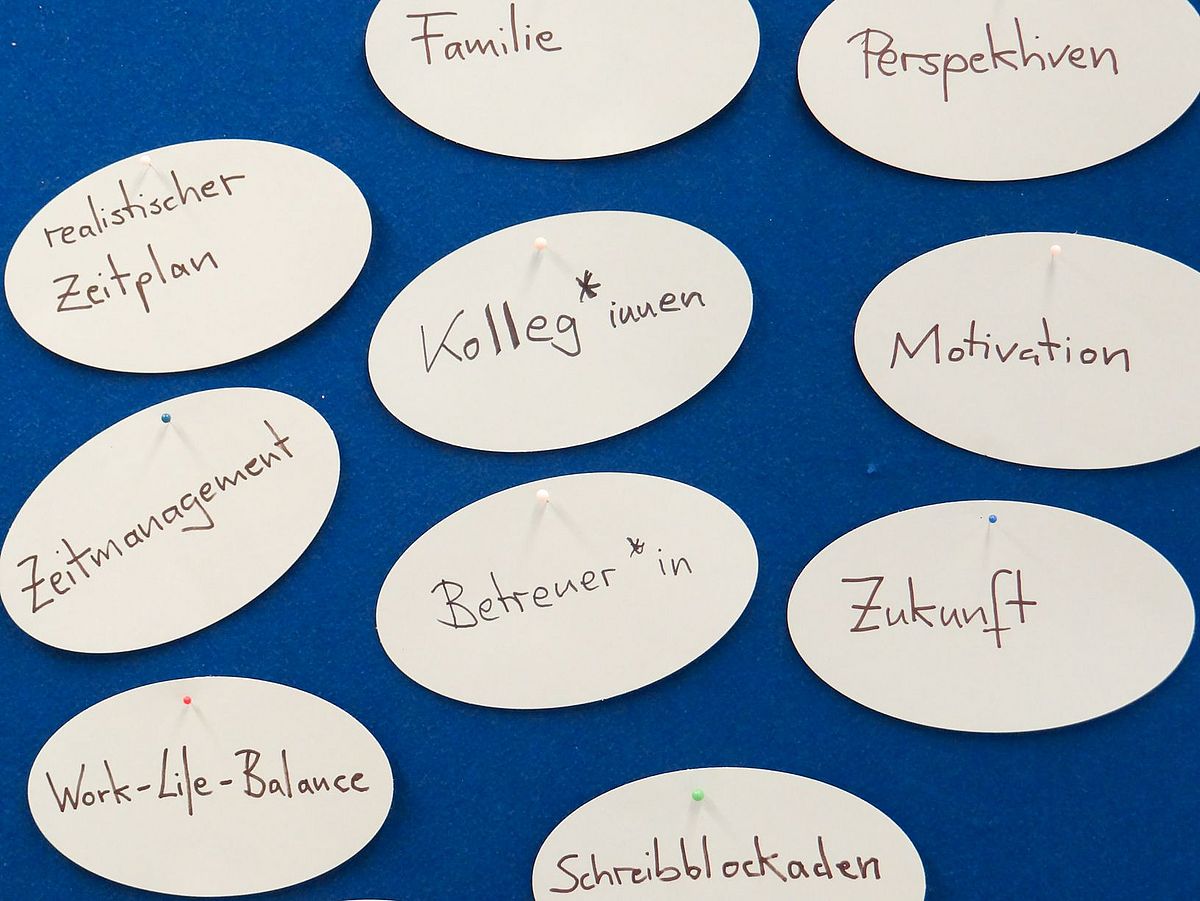 Familie
Perspektiven
realistischer
Zeitplan
Kolleg*innen
Motivation
Zeitmanagement
Betreuer*in
Zukunft
Work-Life-Balance
Schreibblockaden